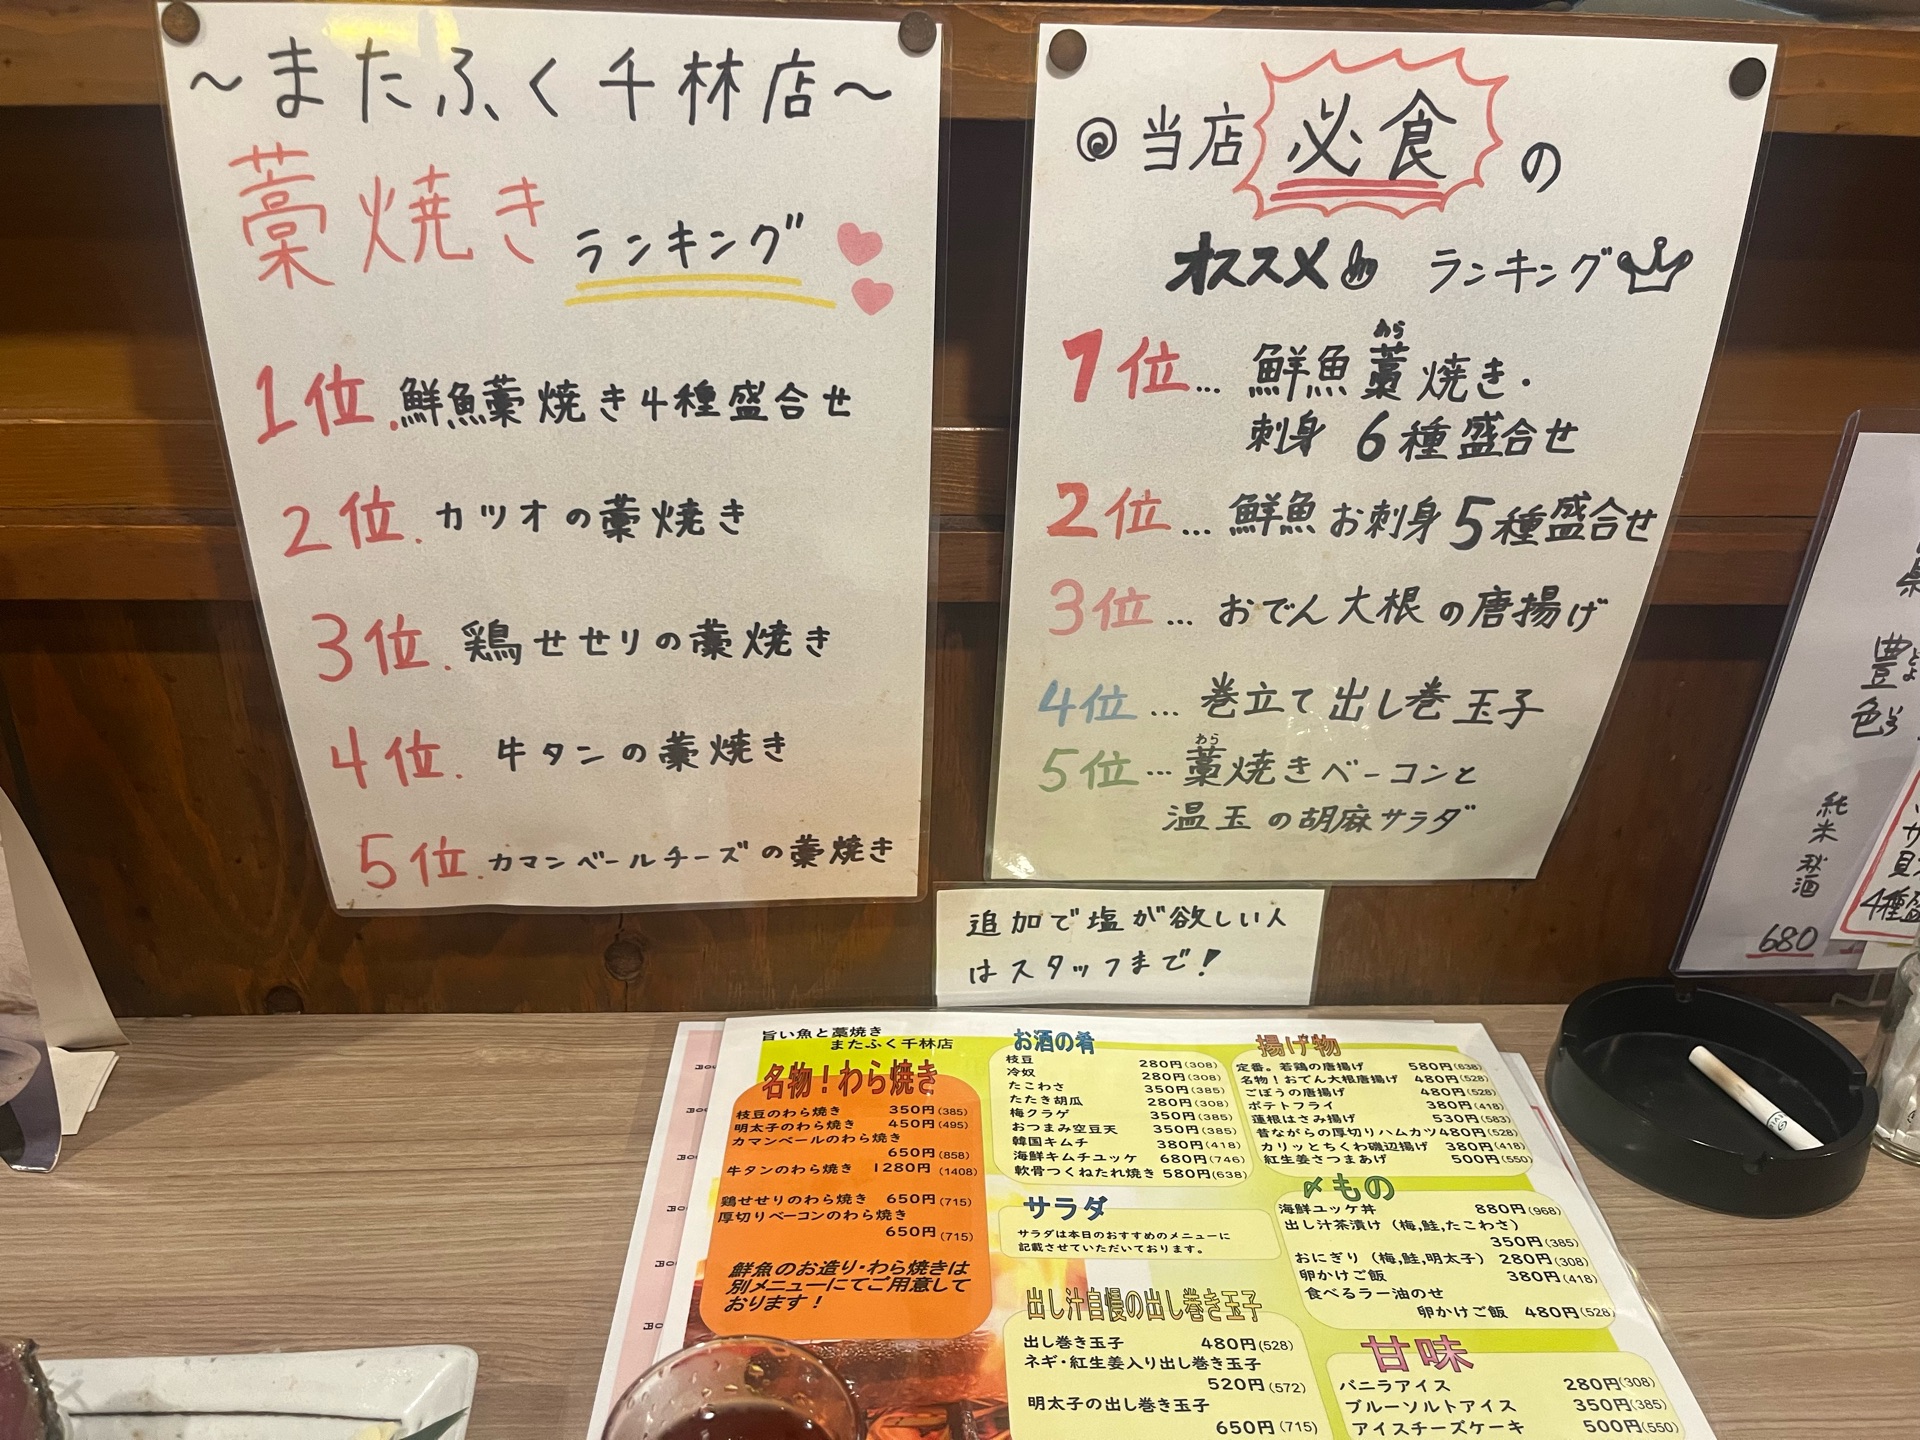 ～またふく千林店～
藁焼きランキング
1位.鮮魚藁焼き4種盛合せ
2位.カツオの藁焼き
3位.鶏せせりの藁焼き
4位.牛タンの藁焼き
5位.カマンベールチーズの藁焼き
◎当店必食の
オススメ ランキング
1位…鮮魚藁焼き・
わら
刺身 6種盛合せ
2位…鮮魚お刺身5種盛合せ
3位…おでん大根の唐揚げ
4位…巻立て出し巻玉子
わら
5位…藁焼きベーコンと
温玉の胡麻サラダ
追加で塩が欲しい人
はスタッフまで!
純米
秋酒
680
旨い魚と藁焼き
またふく千林店
名物！わら焼き
枝豆のわら焼き 350円(385)
明太子のわら焼き 450円(495)
カマンベールのわら焼き
650円(858)
牛タンのわら焼き 1280円(1408)
鶏せせりのわら焼き 650円(715)
厚切りベーコンのわら焼き
650円(715)
鮮魚のお造り・わら焼きは
別メニューにてご用意して
おります！
お酒の肴
枝豆 280円(308)
冷奴 280円(308)
たこわさ 350円(385)
たたき胡瓜 280円(308)
梅クラゲ 350円(385)
おつまみ空豆天 350円(385)
韓国キムチ 380円(418)
海鮮キムチユッケ 680円(746)
軟骨つくねたれ焼き 580円(638)
サラダ
サラダは本日のおすすめのメニューに
記載させていただいております。
出し汁自慢の出し巻き玉子
出し巻き玉子 480円(528)
ネギ・紅生姜入り出し巻き玉子
520円(572)
明太子の出し巻き玉子
650円(715)
揚げ物
定番。若鶏の唐揚げ 580円(638)
名物！おでん大根唐揚げ 480円(528)
ごぼうの唐揚げ 480円(528)
ポテトフライ 380円(418)
蓮根はさみ揚げ 530円(583)
昔ながらの厚切りハムカツ480円(528)
カリッとちくわ磯辺揚げ 380円(418)
紅生姜さつまあげ 500円(550)
〆もの
海鮮ユッケ丼 880円(968)
出し汁茶漬け（梅,鮭,たこわさ）
350円(385)
おにぎり（梅,鮭,明太子） 280円(308)
卵かけご飯 380円(418)
食べるラー油のせ
卵かけご飯 480円(528)
甘味
バニラアイス 280円(308)
ブルーソルトアイス 350円(385)
アイスチーズケーキ 500円(550)